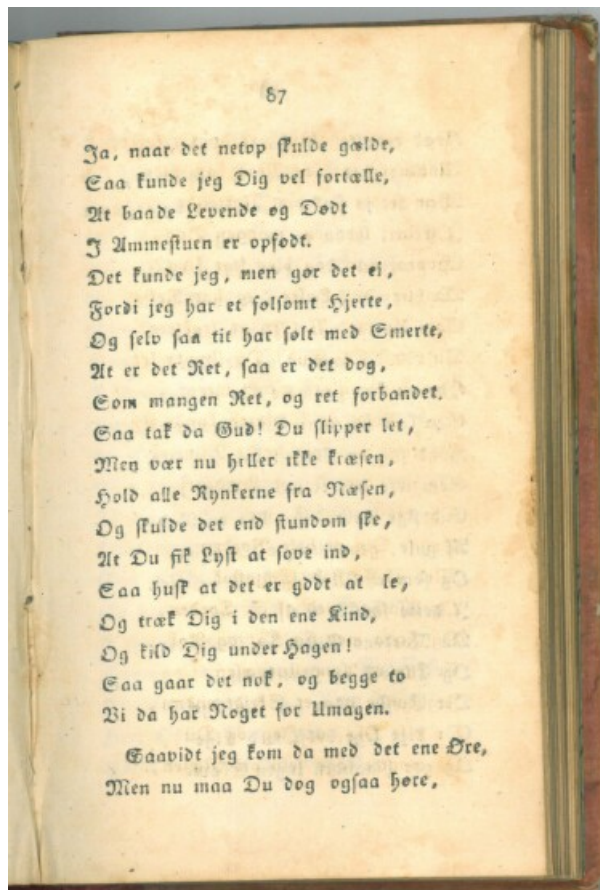 87
Ja, naar det netop skulde gælde,
Saa kunde jeg Dig vel fortælle,
At baade Levende og Dødt
I Ammestuen er opfødt.
Det kunde jeg, men gør det ei,
Fordi jeg har et følsomt Hjerte,
Og selv saa tit har følt med Smerte,
At er det Ret, saa er det dog,
Som mangen Ret, og ret forbandet.
Saa tak da Gud! Du slipper let,
Men vær nu heller ikke kræsen,
Hold alle Rynkerne fra Næsen,
Og skulde det end stundom ske,
At Du fik Lyst at sove ind,
Saa husk at det er godt at le,
Og træk Dig i den ene Kind,
Og kild Dig under Hagen!
Saa gaar det nok, og begge to
Vi da har Noget for Umagen.
Saavidt jeg kom da med det ene Øre,
Men nu maa Du dog ogsaa høre,